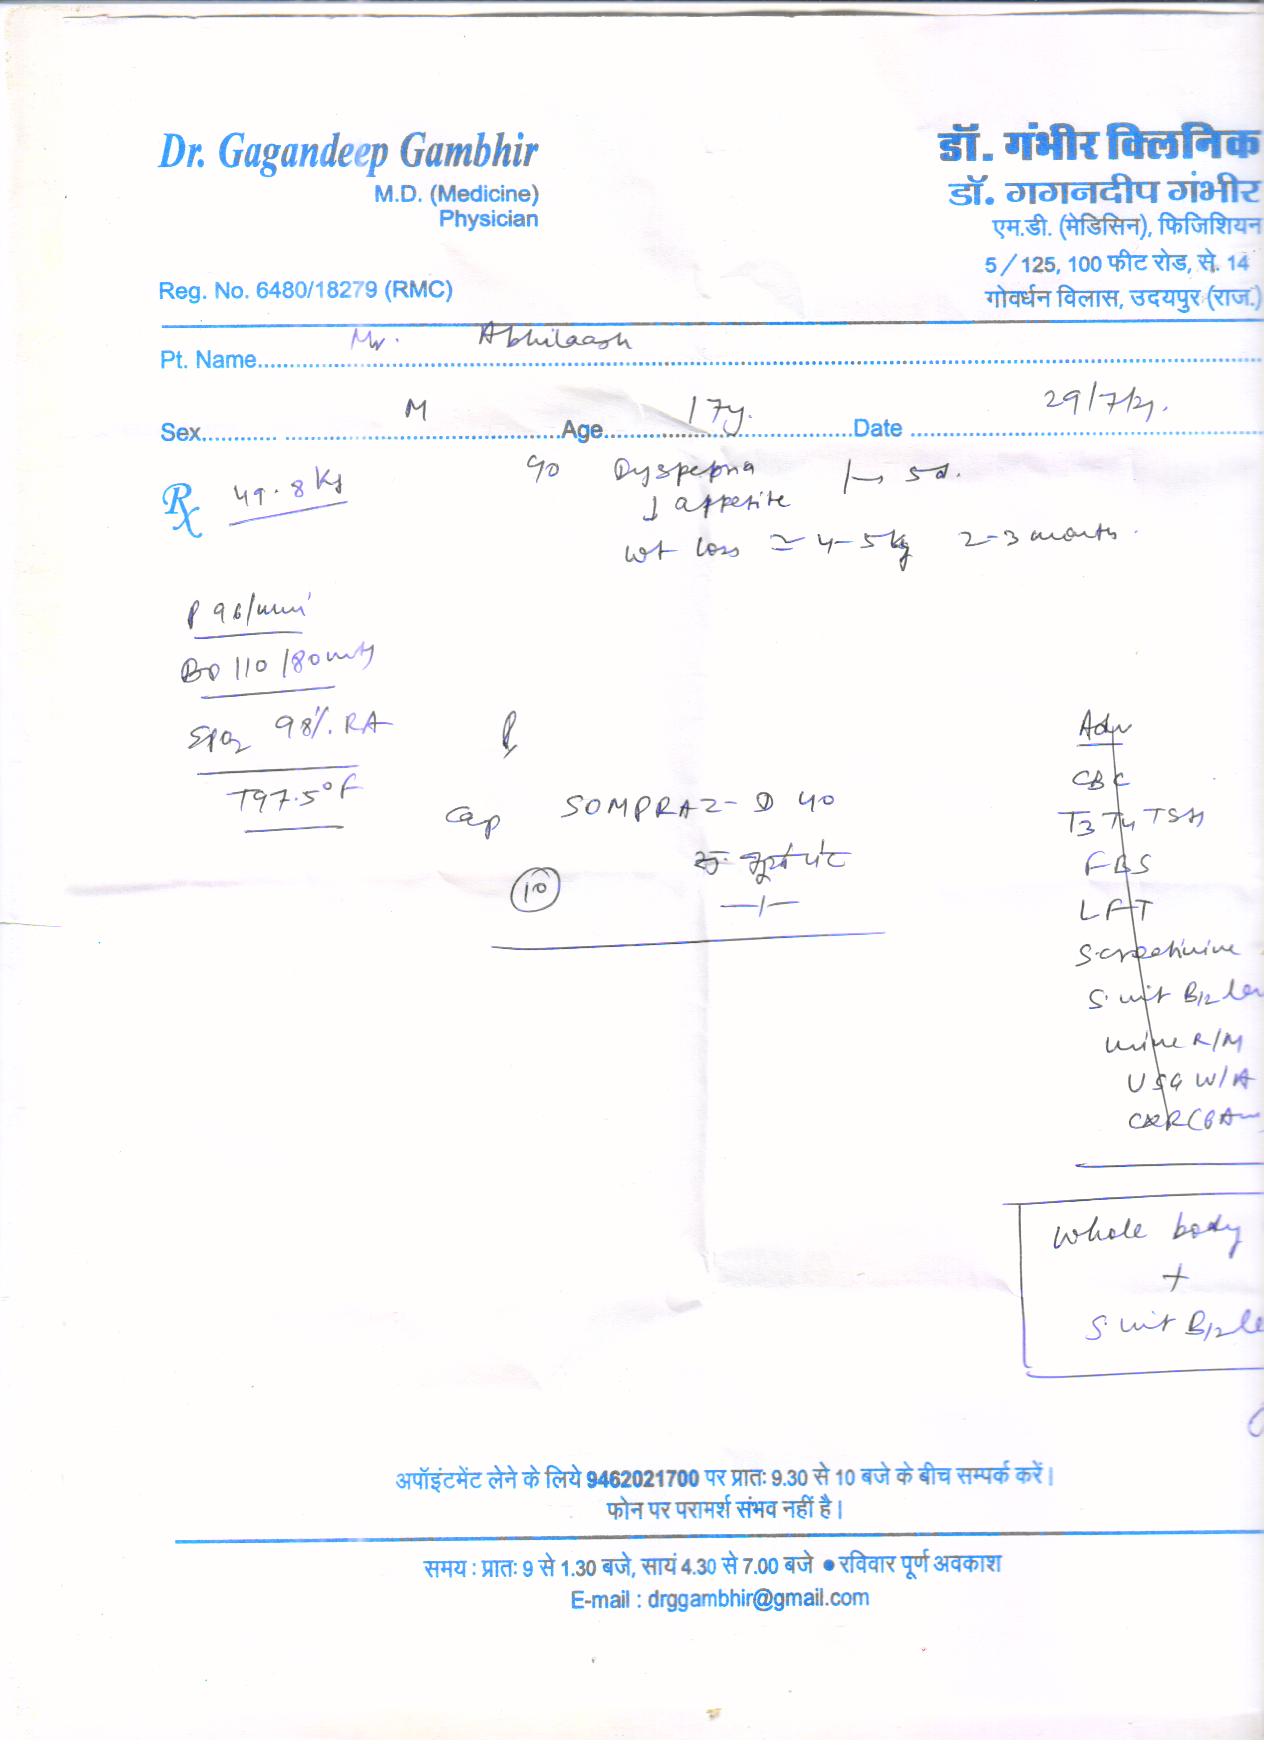 Dr. Gagandeep Gambhir
M.D. (Medicine)
Physician
Reg. No. 6480/18279 (RMC)
डॉ. गंभीर क्लिनिक
डॉ. गगनदीप गंभीर
एम.डी. (मेडिसिन), फिजिशियन
5/125, 100 फीट रोड, से. 14
गोवर्धन विलास, उदयपुर (राज.)
Pt. Name Mr. Abhilaash
Sex M Age 17y. Date 29/7/21.
Rx 49.8 Kg
Dyspepsia
↓ appetite 5d.
wt loss ≃ 4-5kg 2-3 months.
P 96/min
BP 110/80mmHg
SpO2 98% RA
T97.5°F
Cap SOMPRAZ-D 40
10
—/—
Adv
CBC
T3 T4 TSH
FBS
LFT
S. creatinine
S. vit B12 lev
Urine R/M
USG W/A
CXR (PA
Whole body
+
S vit B12 le
अपॉइंटमेंट लेने के लिये 9462021700 पर प्रातः 9.30 से 10 बजे के बीच सम्पर्क करें।
फोन पर परामर्श संभव नहीं है।
समय : प्रातः 9 से 1.30 बजे, सायं 4.30 से 7.00 बजे ● रविवार पूर्ण अवकाश
E-mail : drggambhir@gmail.com